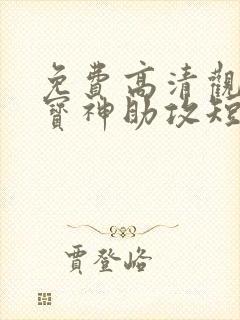 免費高清觀
寶神助攻短
賈登峪